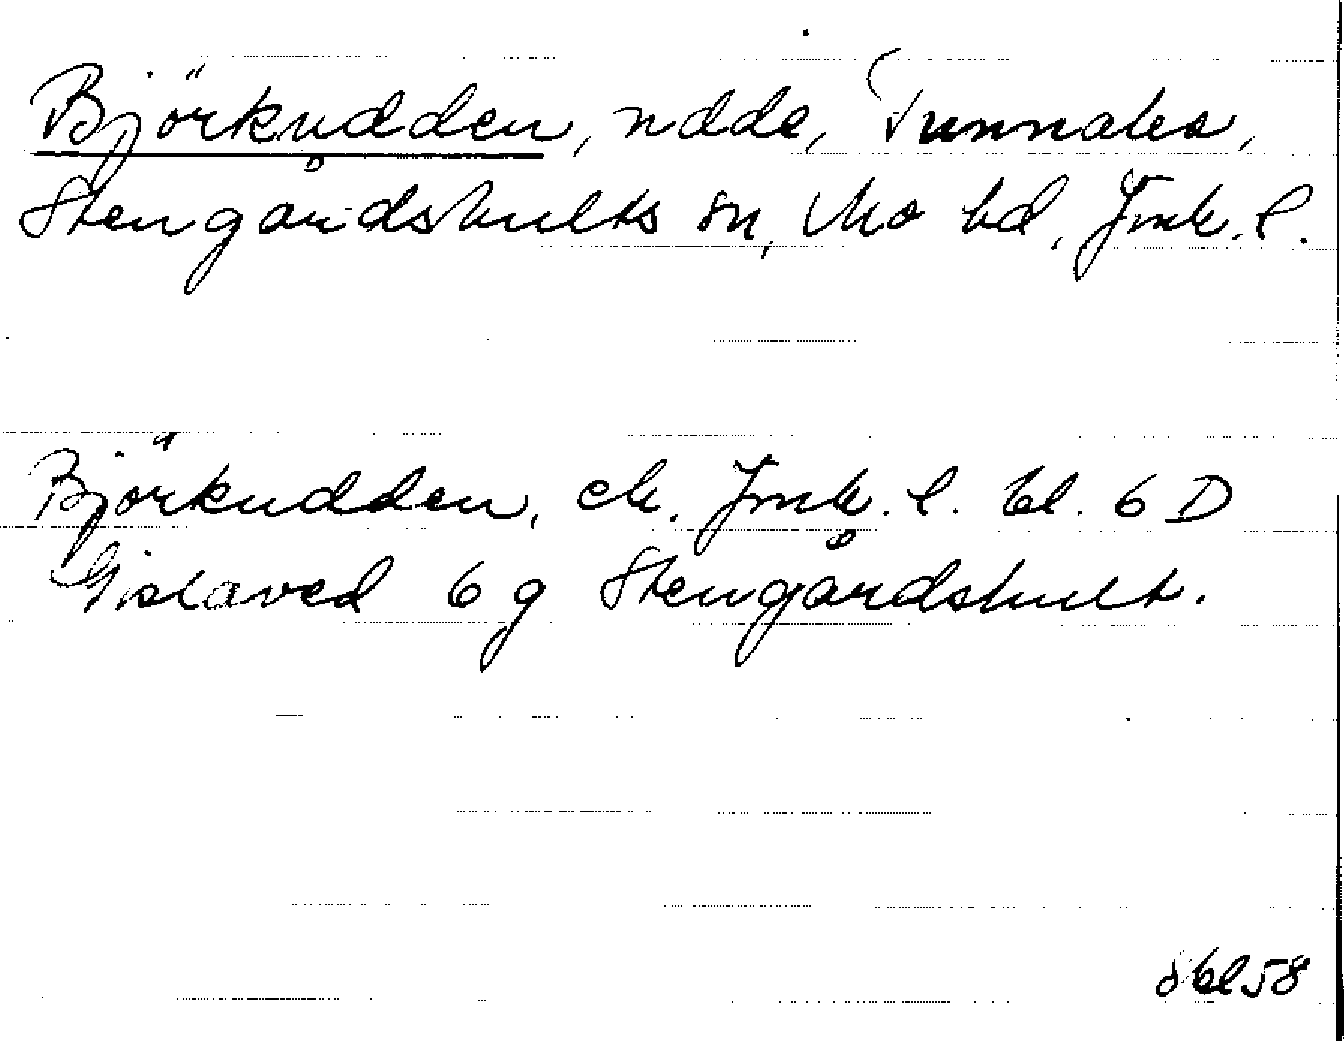 Björkudden, ndde, Tunnabo,
Stengårdshults sn, Mo hd, Jmk. l.
Björkudden, ek. Jmk. l. bl. 6 D
Gislaved 6 g Stengårdshult.